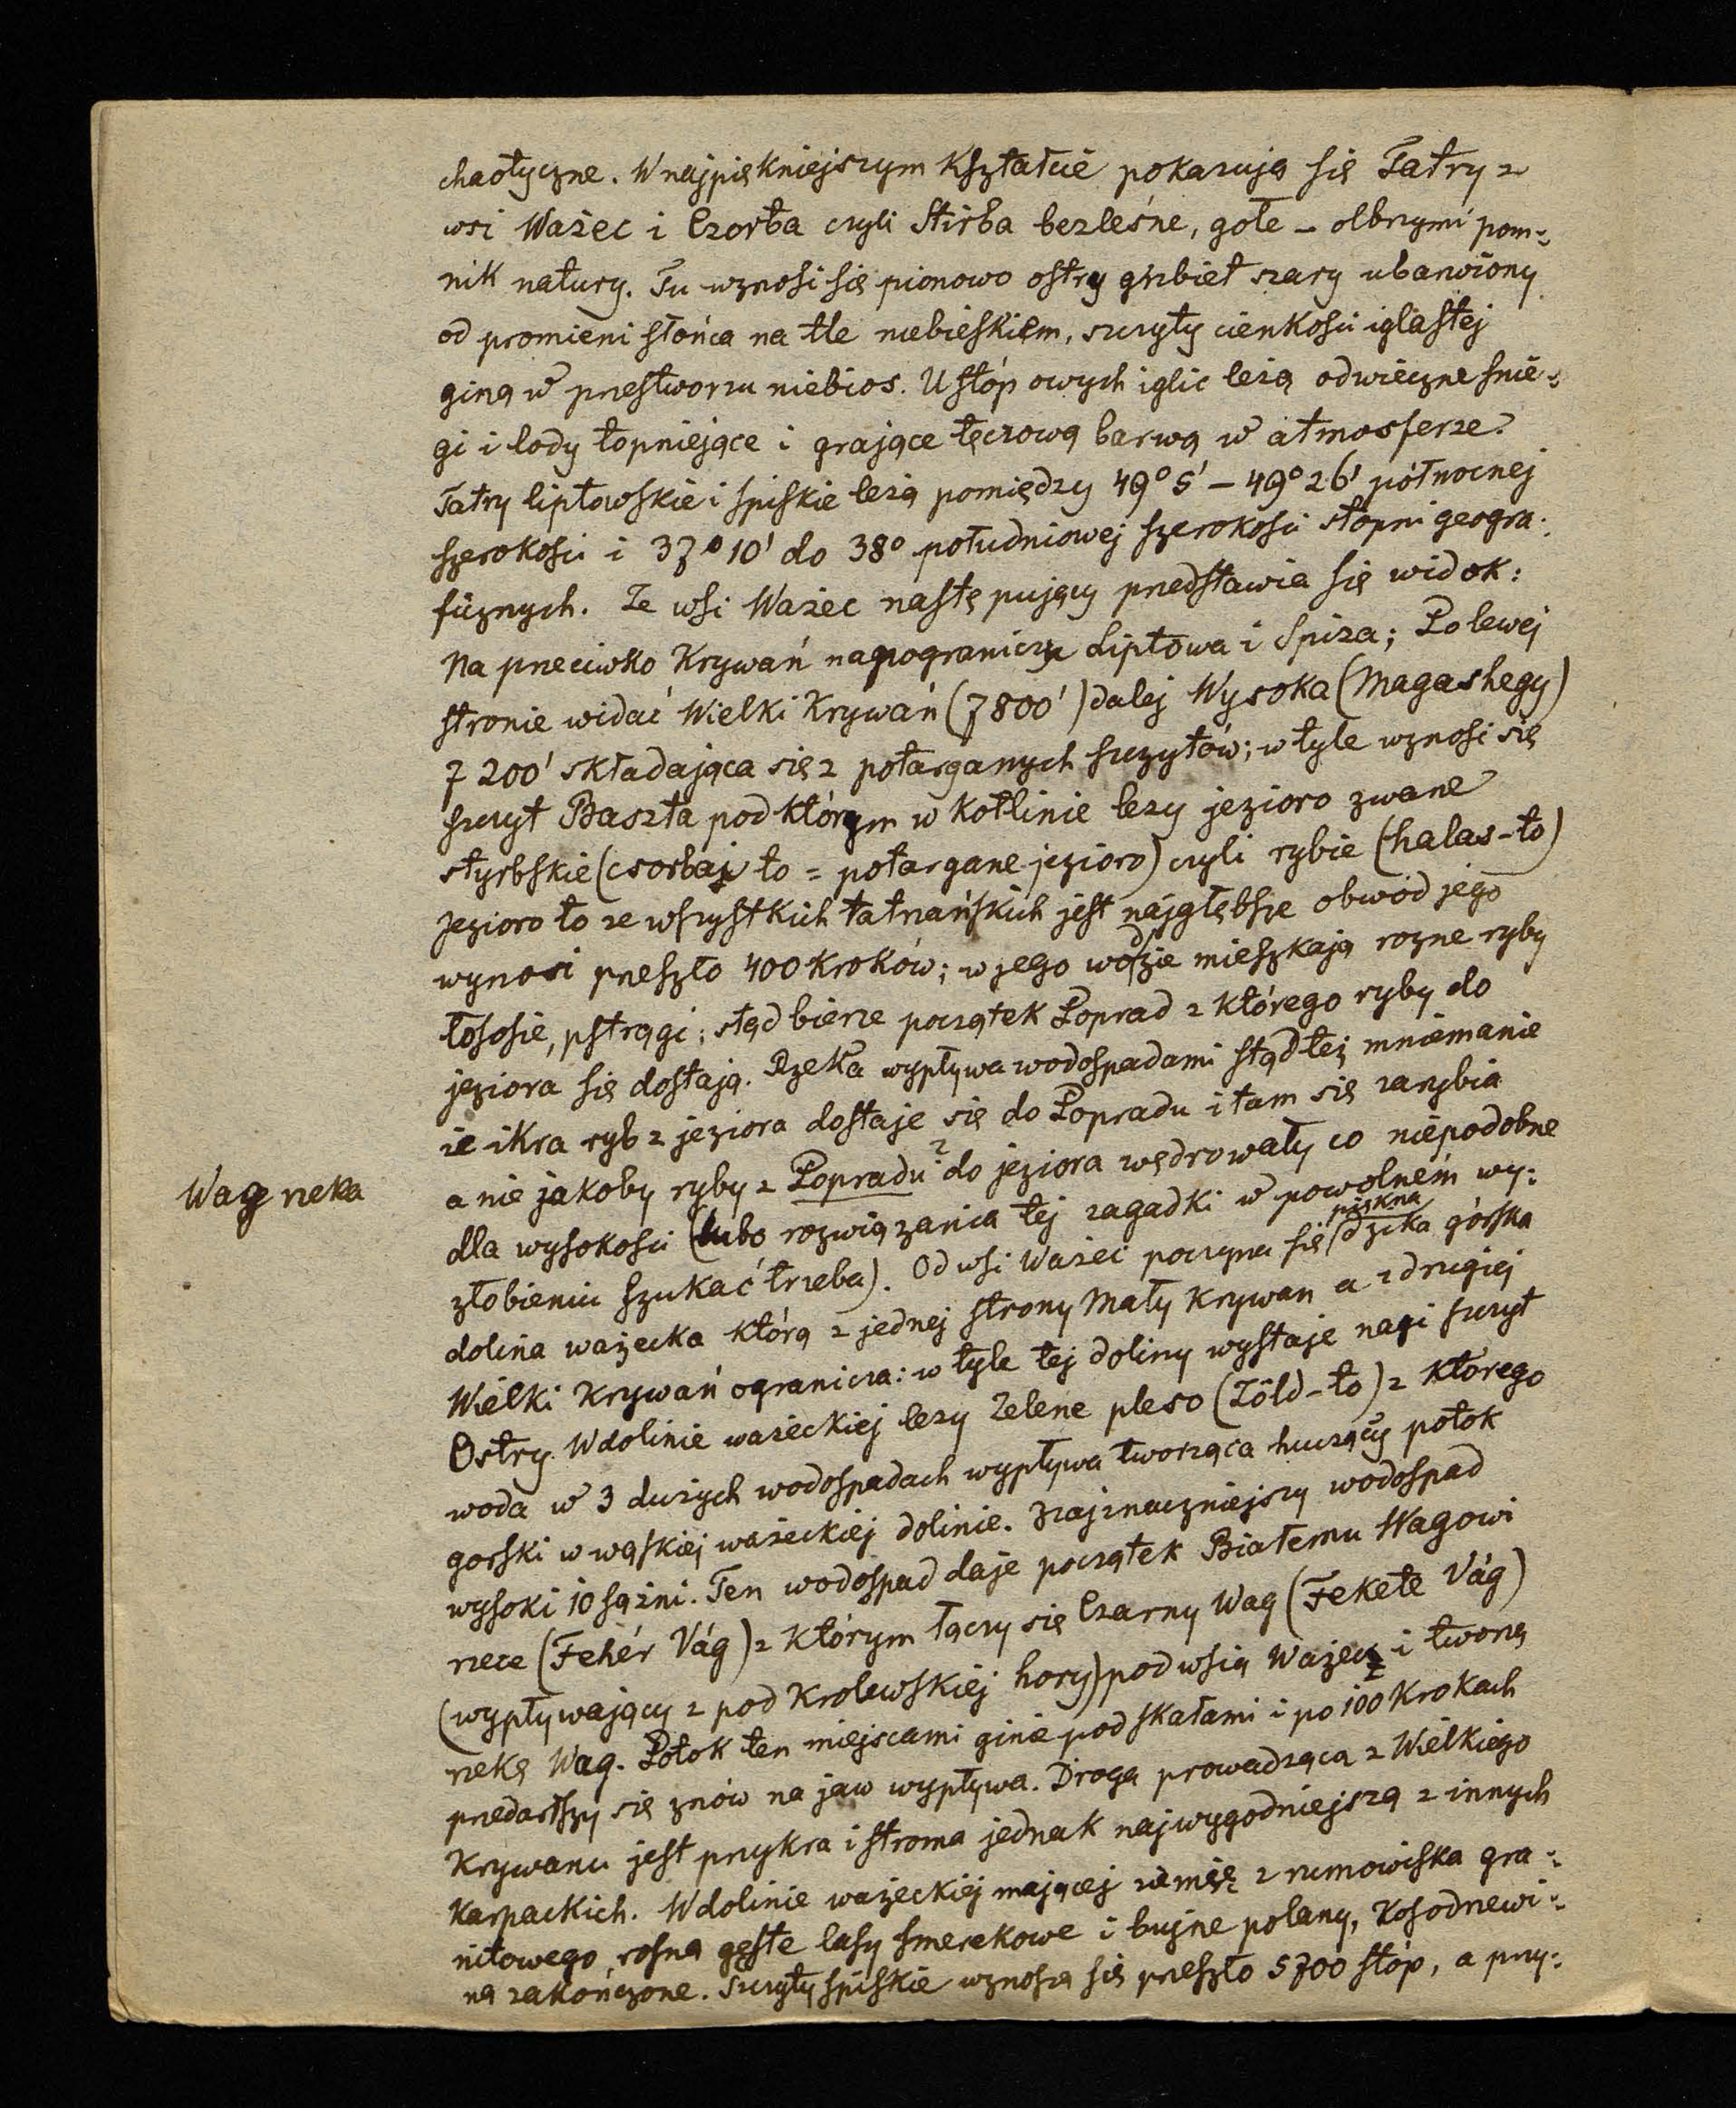 chaotyczne. W najpiękniejszym kształcie pokazują się Tatry z
wsi Ważec i Czorba czyli Stirba bezleśne, gołe – olbrzymi pom-
nik natury. Tu wznosi się pionowo ostry grzbiet szary ubarwiony
od promieni słońca na tle niebieskiem, szczyty cienkości iglastej
giną w przestworzu niebios. U stóp owych iglic leżą odwieczne śnie-
gi i lody topniejące i grające tęczową barwą w atmosferze.
Tatry liptowskie i spiskie leżą pomiędzy 49° 5' – 49° 26' północnej
szerokości i 37° 10' do 38° południowej szerokości stopni geogra-
ficznych. Ze wsi Ważec następujący predstawia się widok:
Na preciwko Krywań na pograniczu Liptowa i Spiza; Po lewej
stronie widać Wielki Krywań (7800') dalej Wysoka (Magashegy)
7200' składająca się z potarganych szczytów; w tyle wznosi się
szczyt Baszta pod którym w kotlinie leży jezioro zwane
styrbskie (csorbai to = potargane jezioro) czyli rybie (halas-to)
Jezioro to ze wszystkich tatrzańskich jest najgłębsze obwód jego
wynosi preszło 400 kroków; w jego wodzie mieszkają rożne ryby
łososie, pstrągi; stąd bierze początek Poprad z którego ryby do
jeziora się dostają. Rzeka wypływa wodospadami stąd też mniemanie
że ikra ryb z jeziora dostaje się do Popradu i tam się zarybia
a nie jakoby ryby z Popradu ? do jeziora wędrowały co niepodobne
Wag rzeka
dla wysokości (lubo rozwiązania tej zagadki w powolnem wy-
żłobieniu szukać trzeba). Od wsi Ważec poczyna się piękna dzika górska
dolina ważecka którą z jednej strony Mały Krywan a z drugiej
Wielki Krywań ogranicza: w tyle tej doliny wystaje nagi szczyt
Ostry. W dolinie ważeckiej leży Zelene pleso (Zöld-to) z którego
woda w 3 dużych wodospadach wypływa tworząca huczący potok
gorski w wąskiej ważeckiej dolinie. Najznaczniejszy wodospad
wysoki 10 sążni. Ten wodospad daje początek Białemu Wagowi
rzece (Fehér Vág) z którym łączy się Czarny Wag (Fekete Vág)
(wypływający z pod Krolewskiej hory) pod wsią Ważec i tworzą
rzekę Wag. Potok ten miejscami ginie pod skałami i po 100 krokach
predarłszy się znów na jaw wypływa. Droga prowadząca z Wielkiego
Krywanu jest przykra i stroma jednak najwygodniejszą z innych
karpackich. W dolinie ważeckiej mającej ziemię z rumowiska gra-
nitowego, rosną gęste lasy smerekowe i bujne polany, Kosodrzewi-
ną zakończone. Szczyty spiskie wznoszą się preszło 5700 stóp, a przy-